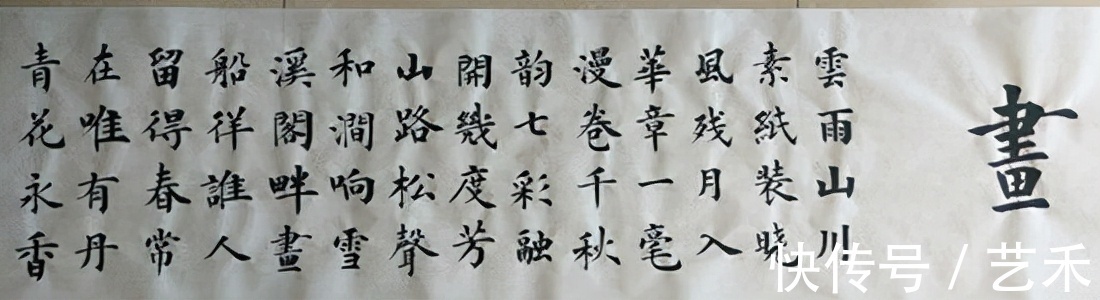 畫
雲雨山川
素紙装曉
風残月入
華章一毫
漫卷千秋
韵七彩融
開幾度芳
山路松聲
和澗响雪
溪閣畔畫
船徉誰人
留得春常
在唯有丹
青花永香
快传号 / 艺禾